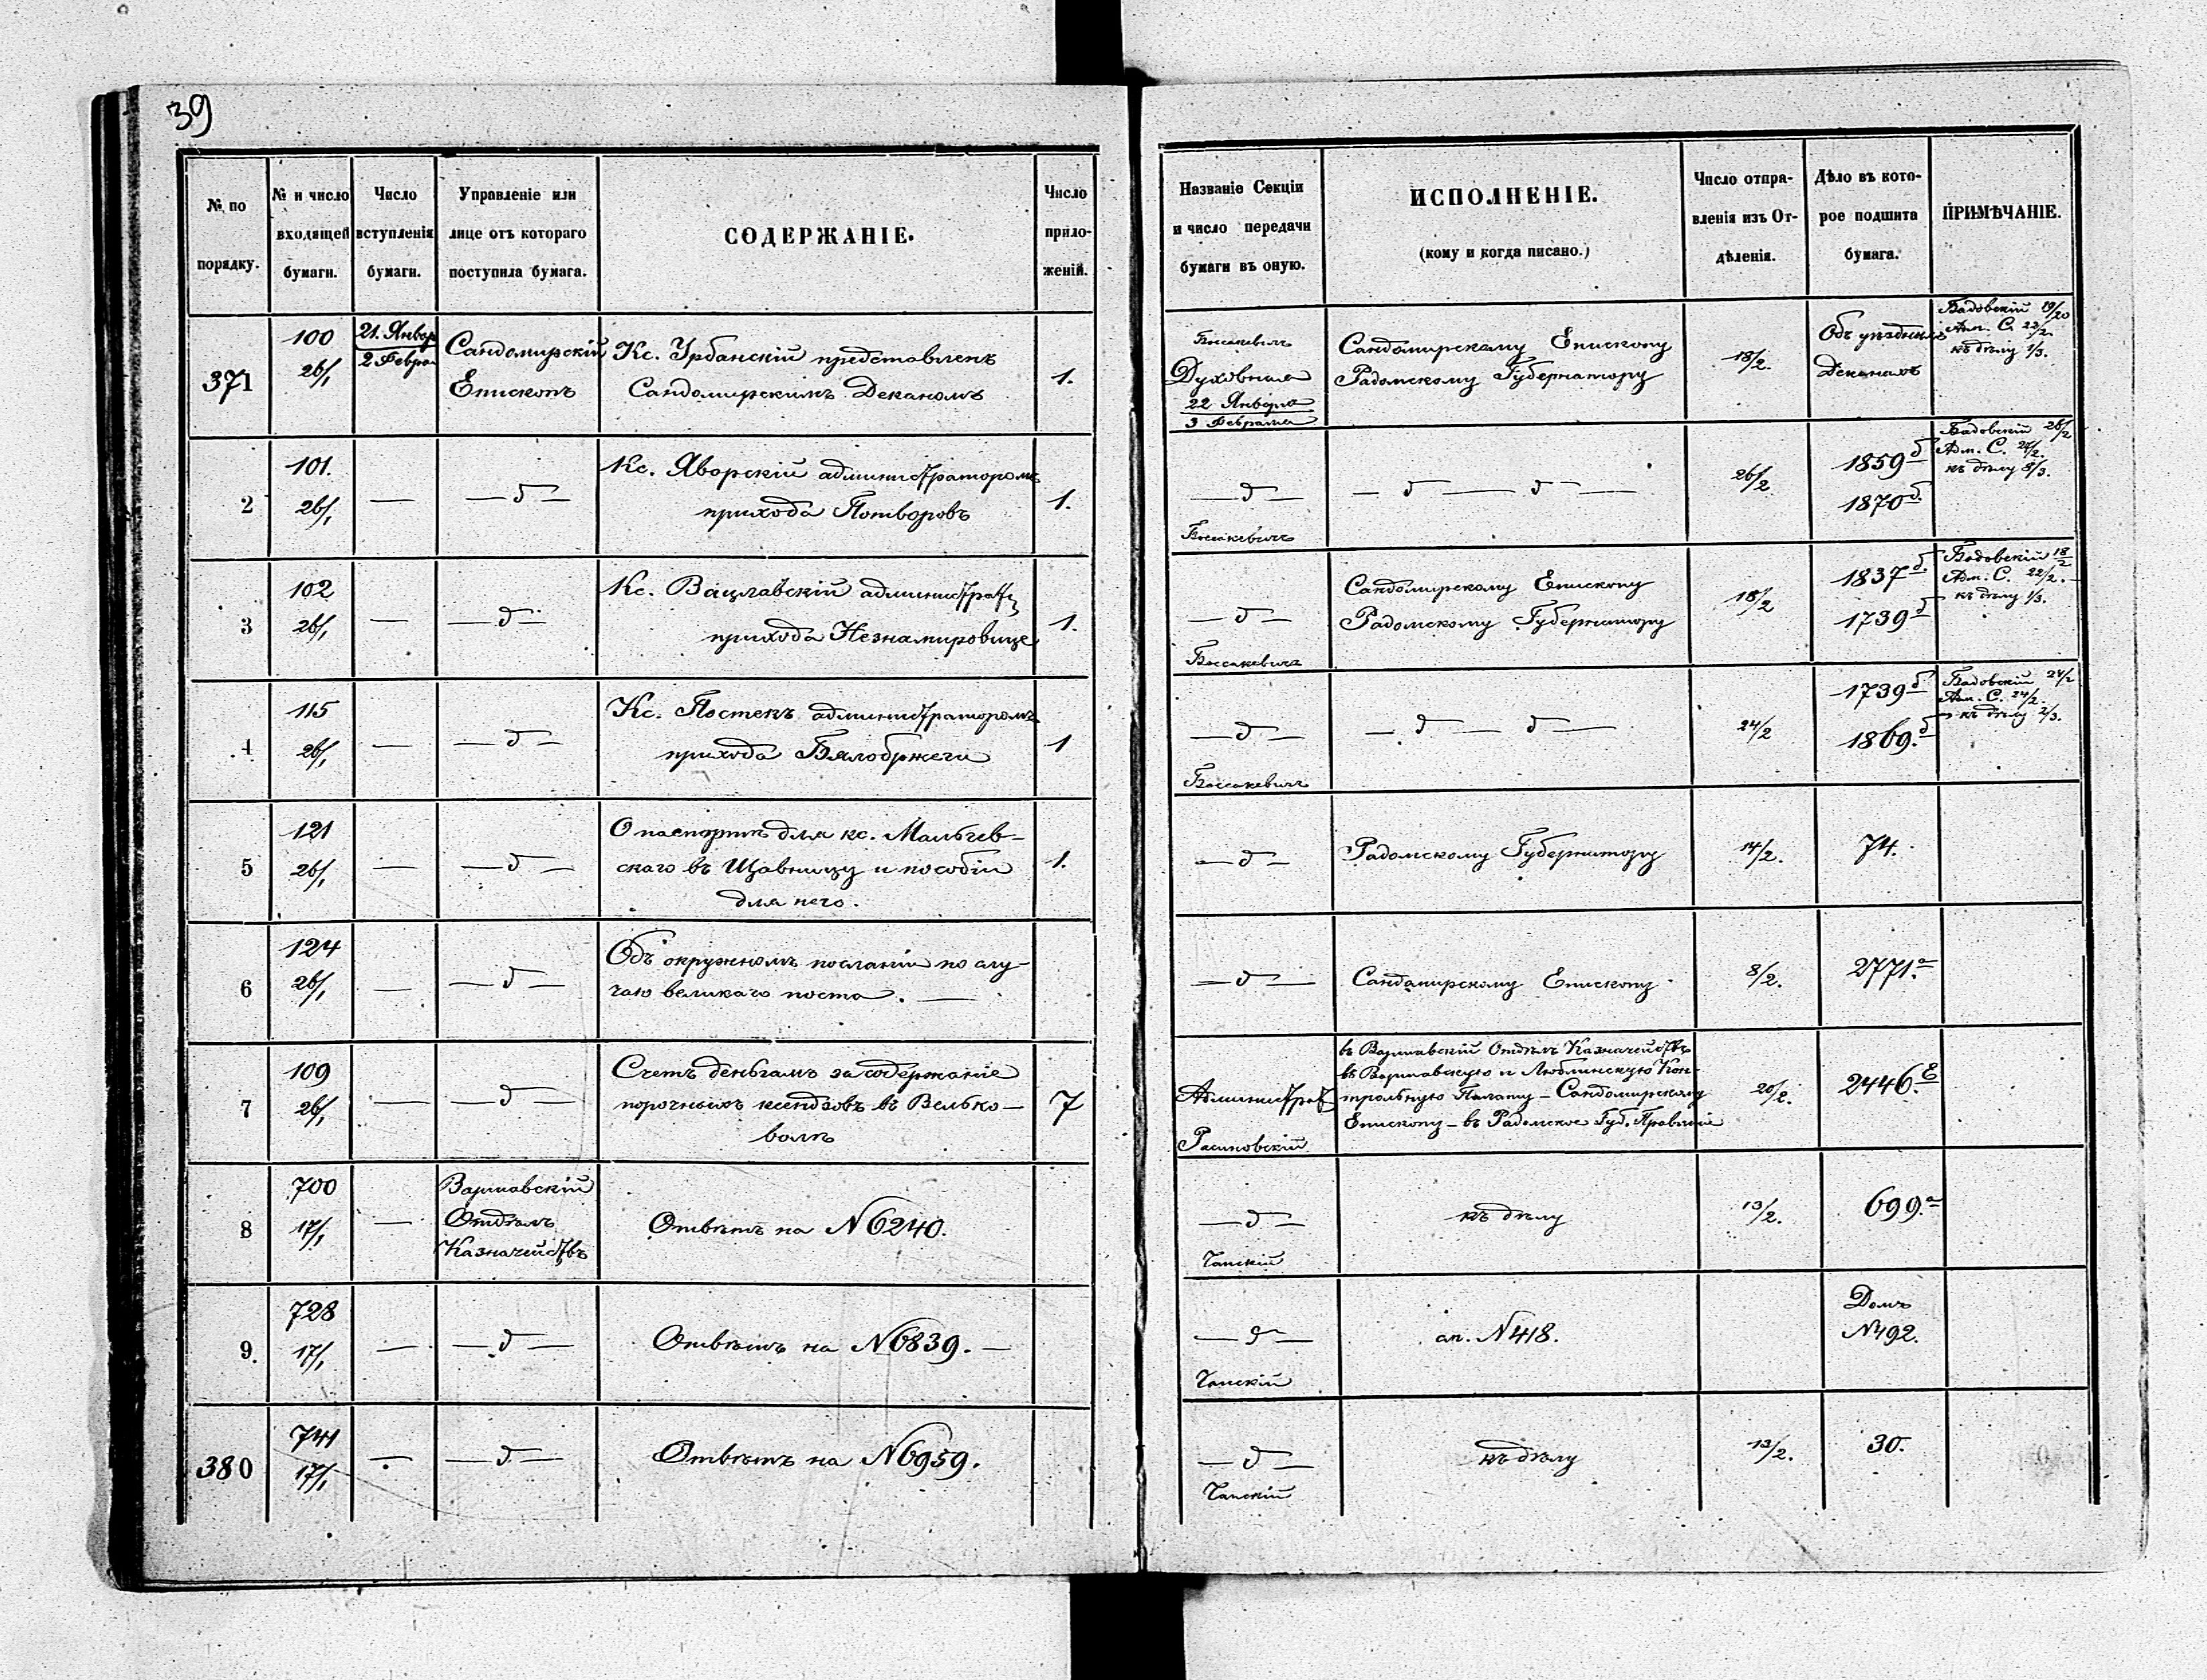 39
№ по порядку.
№ и число входящей бумаги.
Число вступленія бумаги.
Управленіе или лице отъ котораго поступила бумага.
СОДЕРЖАНІЕ.
Число прило-женій.
Названіе Секціи и число передачи бумаги въ оную.
ИСПОЛНЕНІЕ.
(кому и когда писано.)
Число отпра-вленія изъ От-дѣленія.
Дѣло въ кото-рое подшита бумага.
ПРИМѢЧАНІЕ.
371
100
26/1
21. Январ
2 Февра
Сандомирскій
Епископъ
Кс. Урбанскій представленъ
Сандомирскимъ Деканомъ
1.
Боссакевичъ
Духовная
22 Января
3 Февраля
Сандомирскому Епископу
Радомскому Губернатору
18/2.
Объ уѣздныхъ
Деканахъ
Бадовскій 19/20
Адм. С. 22/2.
къ дѣлу 1/3.
2
101.
26/1
— — д —
Кс. Яворскій администраторомъ
прихода Потворовъ
1.
— д —
Боссакевичъ
— д — д —
26/2
1859 б
1870 б.
Бадовскій 26/2
Адм. С. 27/2.
къ дѣлу 8/3.
3
102
26/1
— — д —
Кс. Вацлавскій администрат
прихода Незнамировице
1.
— д —
Боссакевичъ
Сандомирскому Епископу
Радомскому Губернатору
18/2
1837 б.
1739 б
Бадовскій 18/2
Адм. С. 22/2.
къ дѣлу 1/3.
4
115
26/1
— — д —
Кс. Постекъ администраторомъ
прихода Бялобржеги
1
— д —
Боссакевичъ
— д — д —
24/2
1739 б
1869. б
Бадовскій 24/2
Адм. С. 24/2.
къ дѣлу 2/3.
5
121
26/1
— — д —
О паспортѣ для кс. Мальчев-
скаго въ Щавницу и пособіи
для него.
1.
— д —
Радомскому Губернатору
14/2.
74.
6
124
26/1
— — д —
Объ окружномъ посланіи по слу-
чаю великаго поста. —
— д —
Сандомирскому Епископу
8/2.
2771. а
7
109
26/1
— — д —
Счетъ деньгамъ за содержаніе
порочныхъ ксендзовъ въ Велько-
волѣ
7
Администрат
Расиновскій
въ Варшавскій Отдѣлъ Казначействъ
въ Варшавскую и Люблинскую Кон-
трольную Палату — Сандомирскому
Епископу — въ Радомское Губ. Правленіе
20/2.
2446. Е
8
700
17/1
—
Варшавскій
Отдѣлъ
Казначействъ
Отвѣтъ на N 6240.
— д —
Чапскій
къ дѣлу
13/2.
699. а
9.
728
17/1
— — д —
Отвѣтъ на N 6839. —
— д —
Чапскій
сп. N 418.
Домъ
N 492.
380
741
17/1
— — д —
Отвѣтъ на N 6959.
— д —
Чапскій
къ дѣлу
13/2.
30.